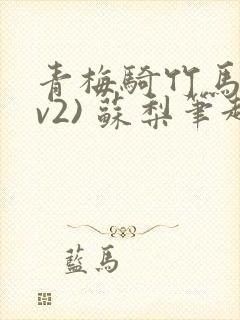 青梅騎竹馬
v2) 蘇梨筆趣
藍馬